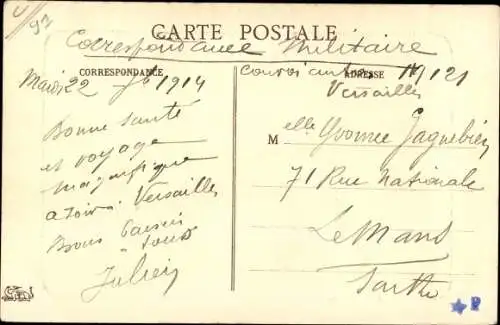 91
CARTE POSTALE
Correspondance Militaire
CORRESPONDANCE
ADRESSE
Mardi 22 1914
Versailles
Bonne santé
et voyage
magnifique
Versailles
Bons Baisers
à tous
Julien
Melle Yvonne
71 Rue Nationale
Le Mans
Sarthe